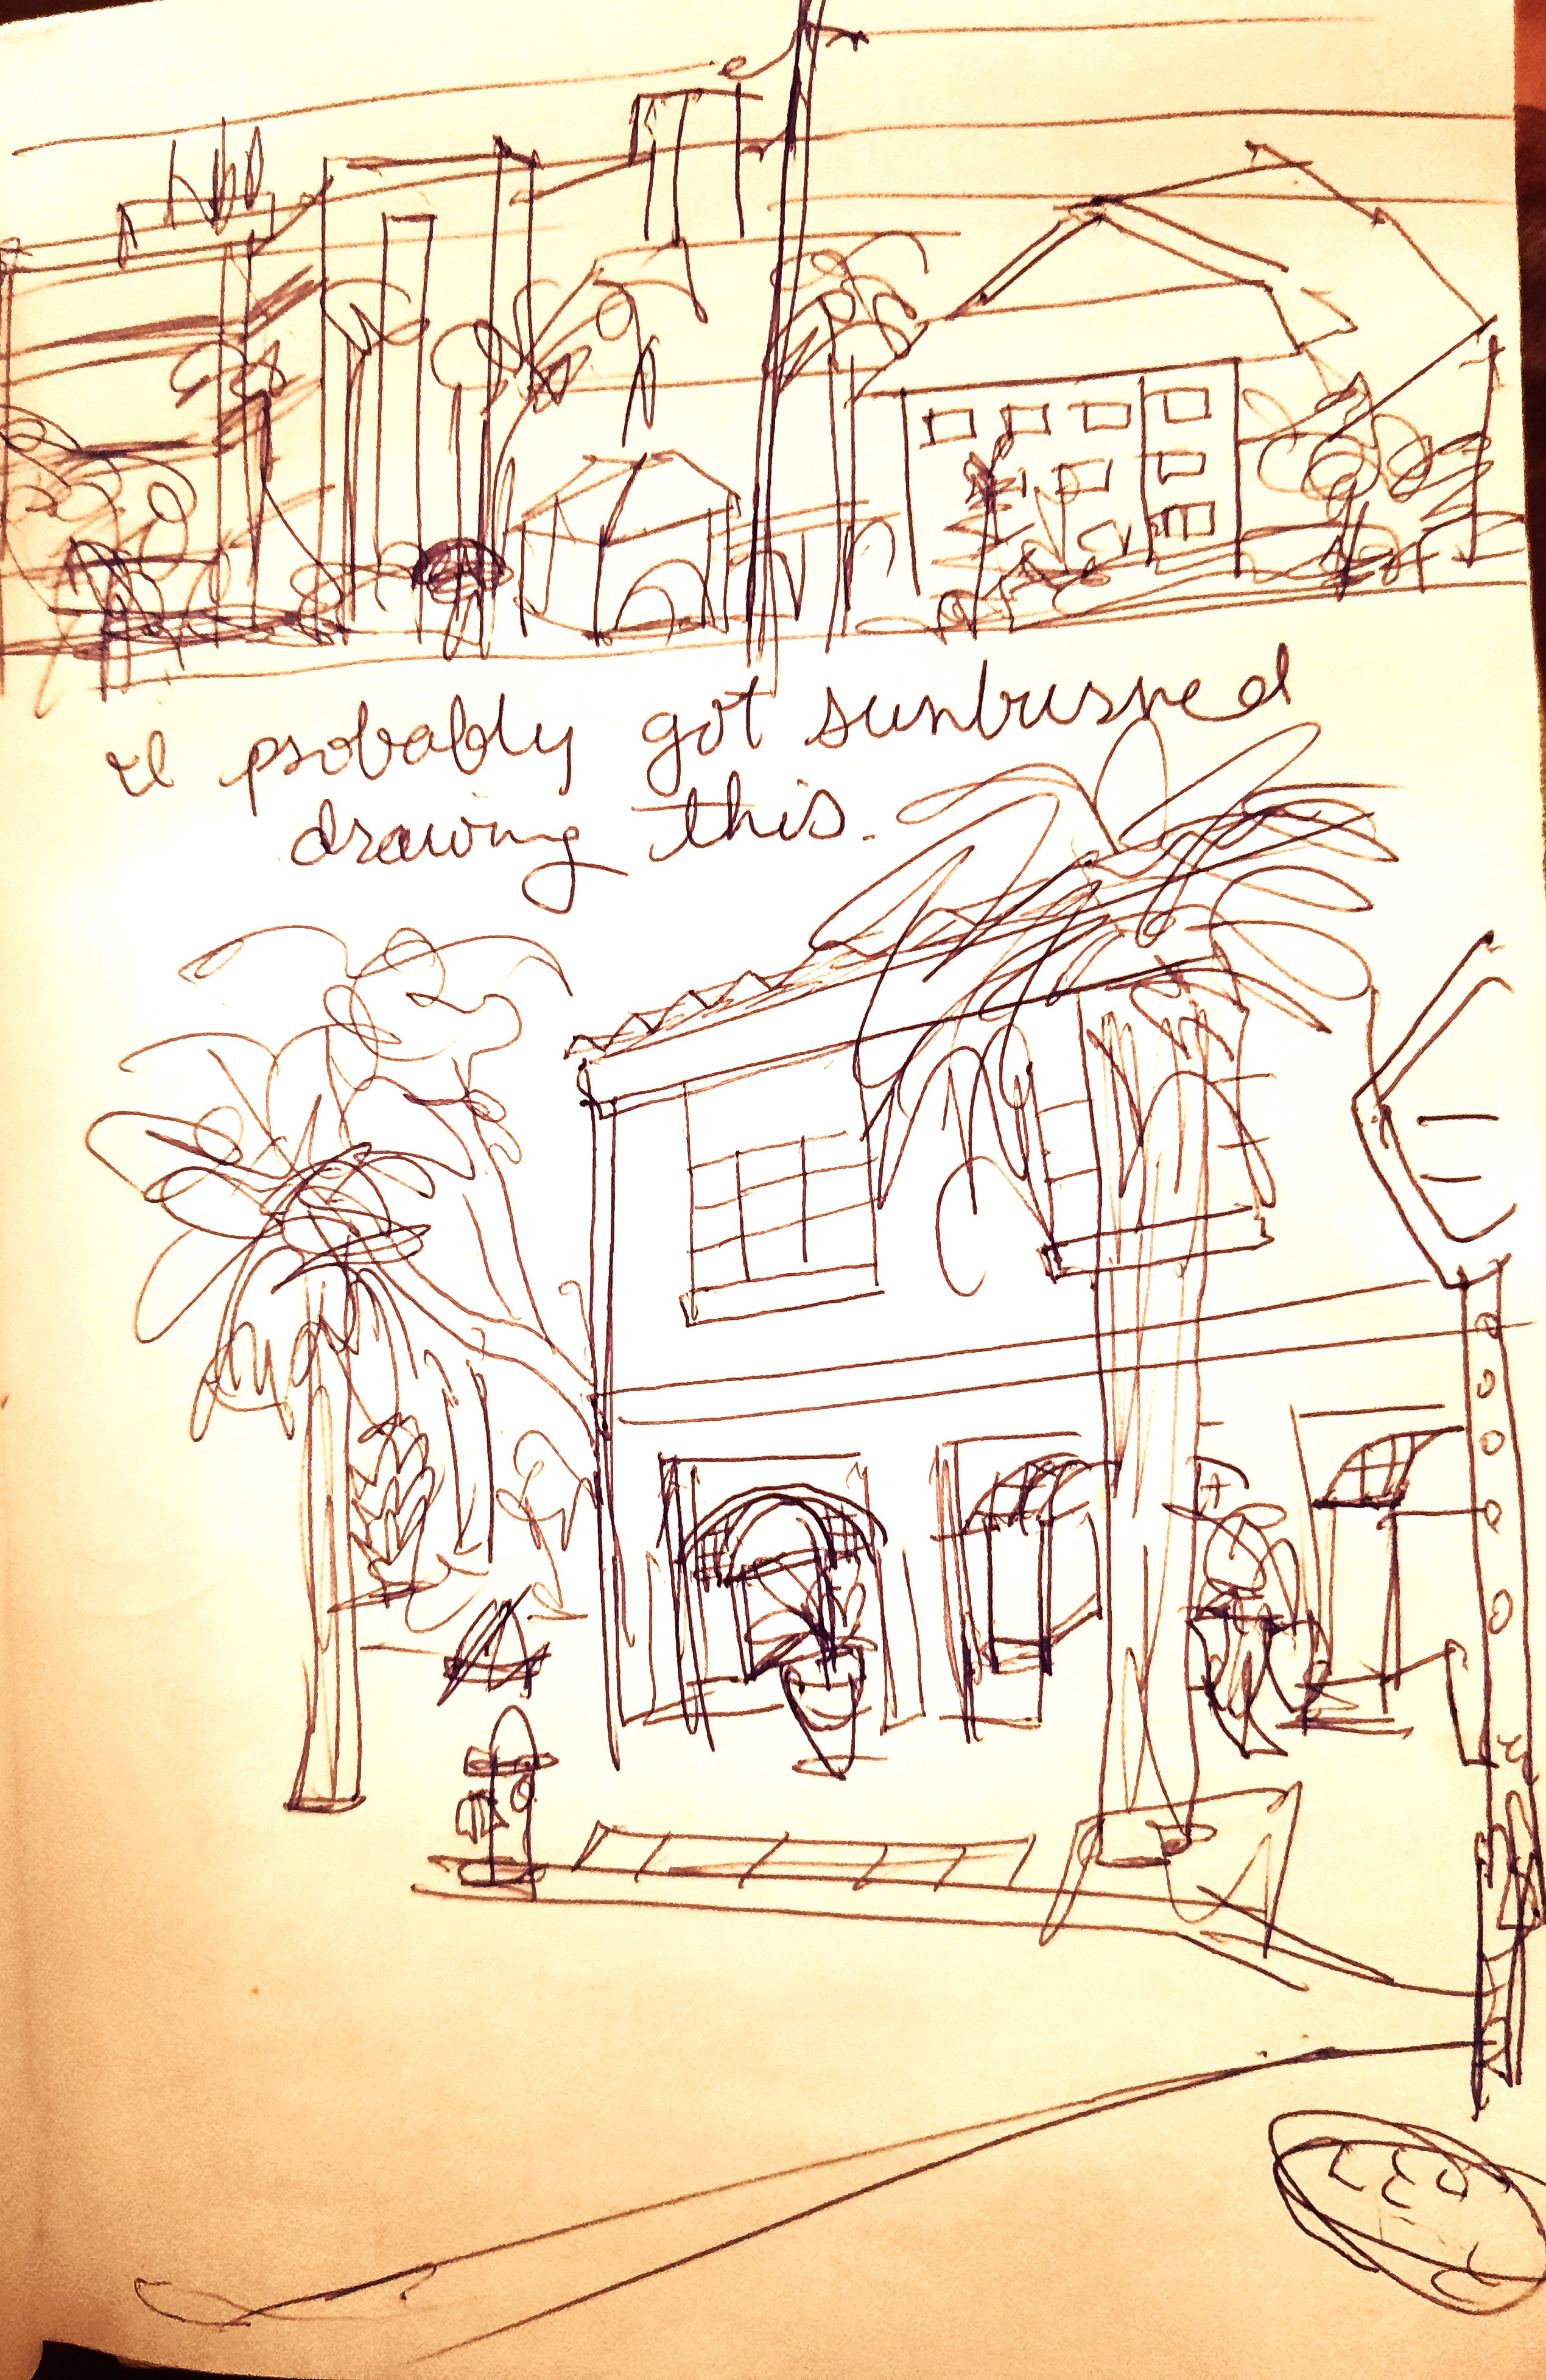 I probably got sunburned
drawing this.